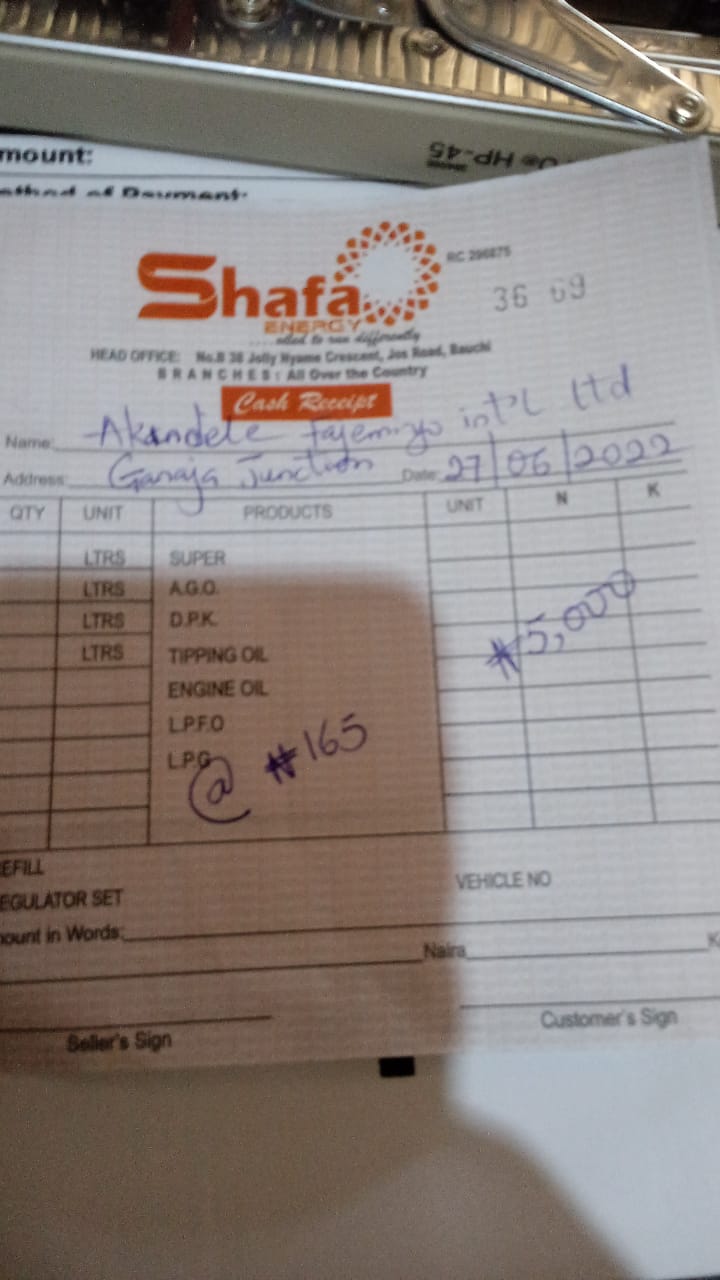 HP-45
mount:
ethod of Payment:
Shafa
ENERGY
RC 296875
36 69
...elled to run differently
HEAD OFFICE: No.B 38 Jolly Nyame Crescent, Jos Road, Bauchi
BRANCHES: All Over the Country
Cash Receipt
Name: Akandele Fajemiyo int'l Ltd
Address: Ganaja Junction Date: 27/06/2022
QTY UNIT PRODUCTS UNIT N K
LTRS SUPER
LTRS A.G.O.
LTRS D.P.K.
₦5,000
LTRS TIPPING OIL
ENGINE OIL
L.P.F.O
L.P.G
@ ₦165
EFILL
EGULATOR SET
VEHICLE NO
ount in Words:
Naira K
Seller's Sign
Customer's Sign